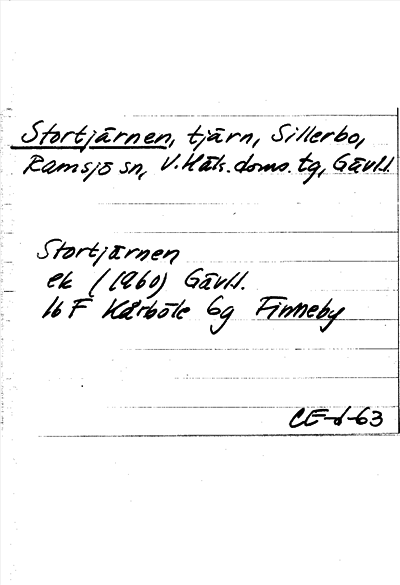 Stortjärnen, tjärn, Sillerbo,
Ramsjö sn, V.Häls.doms.tg, Gävl.l.
Stortjärnen
ek (1960) Gävl.l.
16 F Kårböle 6g Finneby
CE-d-63